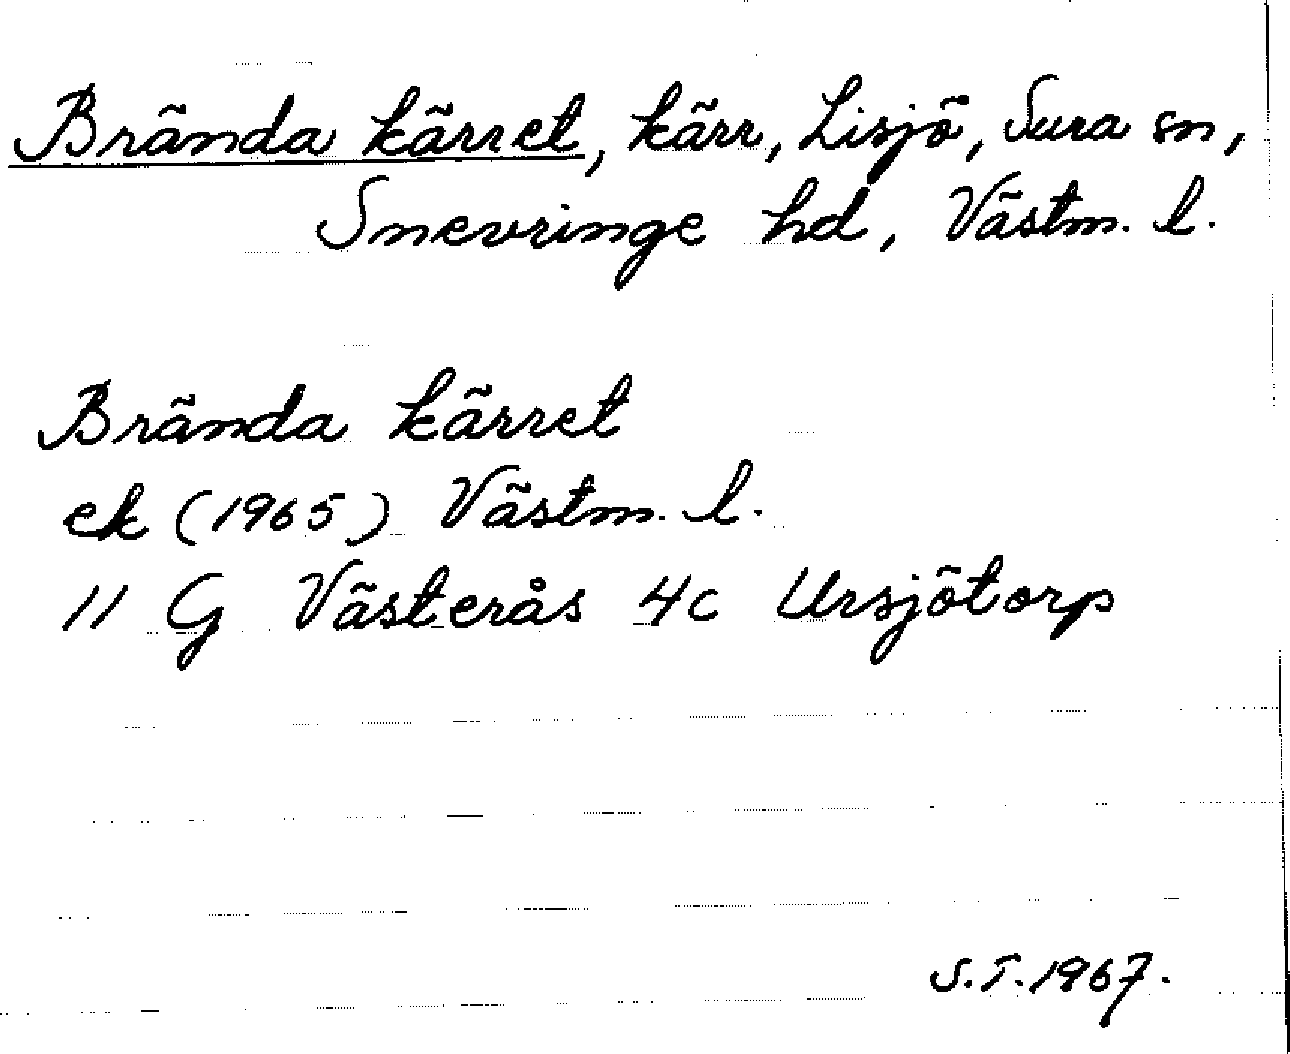 Brända kärret, kärr, Lisjö, Sura sn,
Snevringe hd, Västm. l.
Brända kärret
ek (1965) Västm. l.
11 G Västerås 4c Ursjötorp
S.T. 1967.